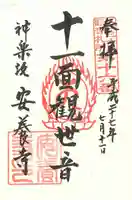 奉拝
平成二十七年
七月十一日
十一面観世音
神楽坂
安養寺